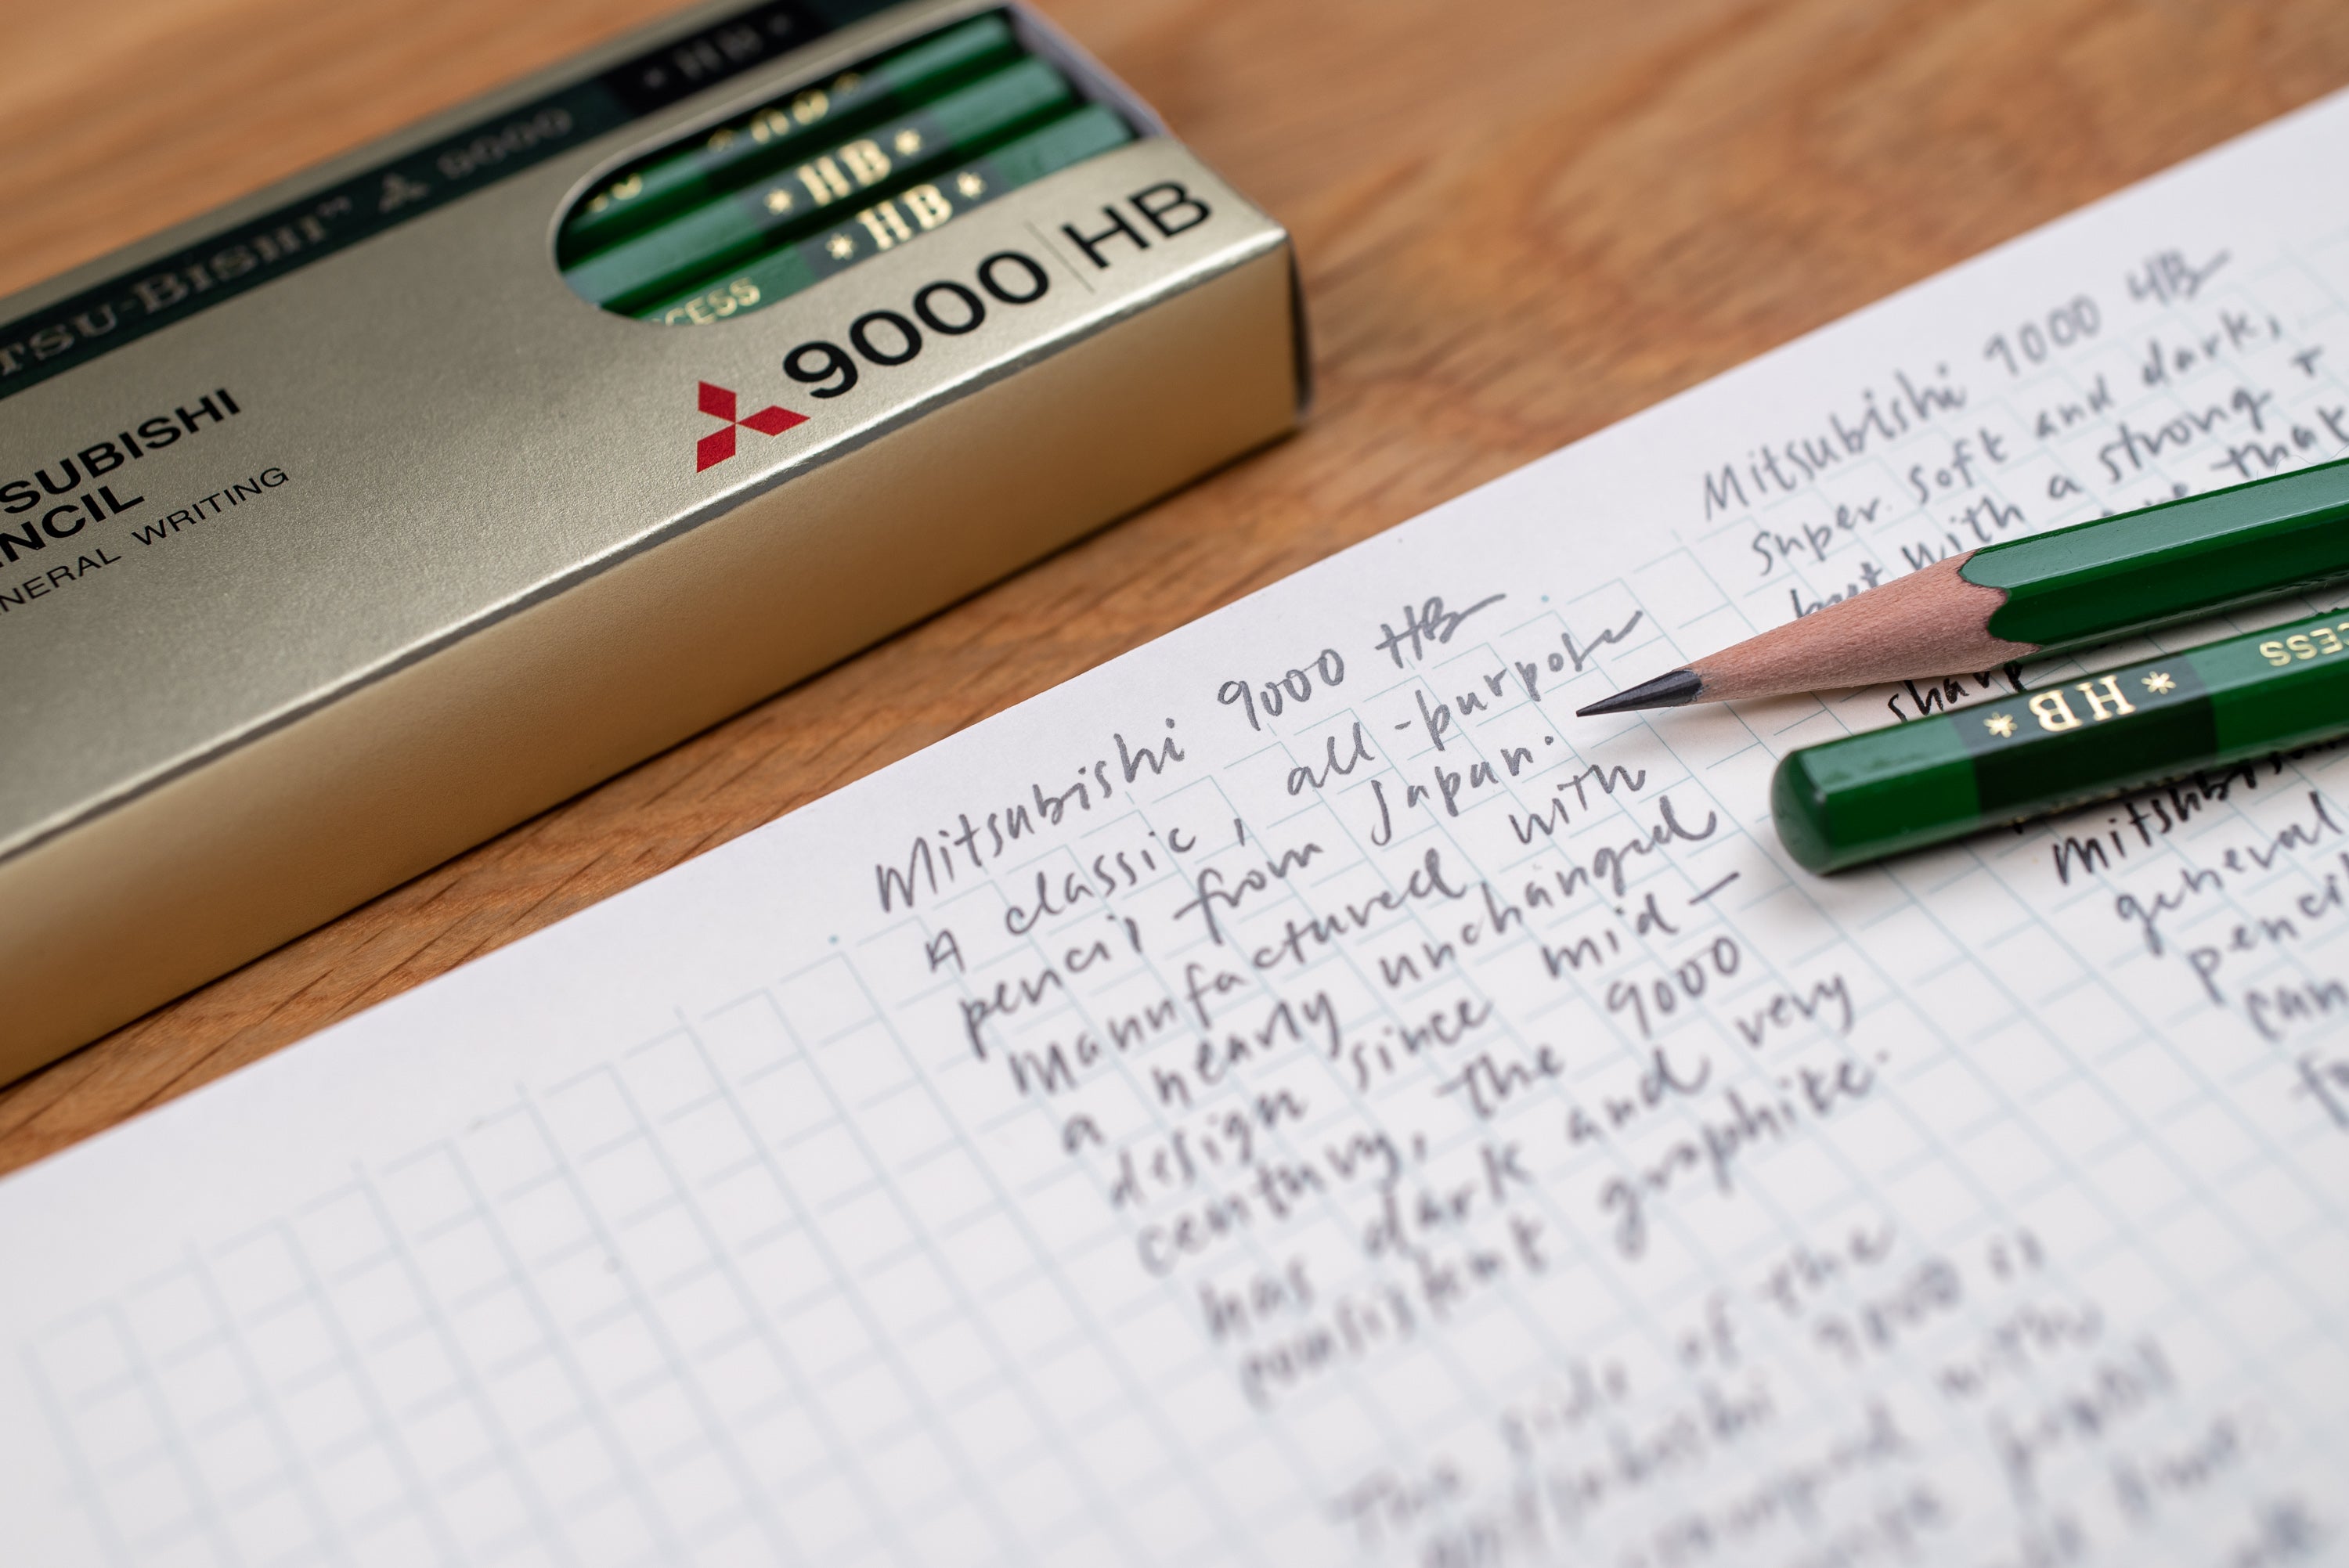 TSU-BISHI™ 9000 *HB*
SUBISHI
NCIL
NERAL WRITING
*HB*
*HB*
CESS
9000 HB
Mitsubishi 9000 HB
A classic, all-purpose
pencil from Japan.
Manufactured with
a nearly unchanged
design since mid-
century, the 9000
has dark and very
consistent graphite.
The side of the
Mitsubishi 9000 is
with
Mitsubishi 9000 HB
Super soft and dark,
but with a strong +
that
sharp
Mitsubishi
general
pencil
can
*HB*
CESS